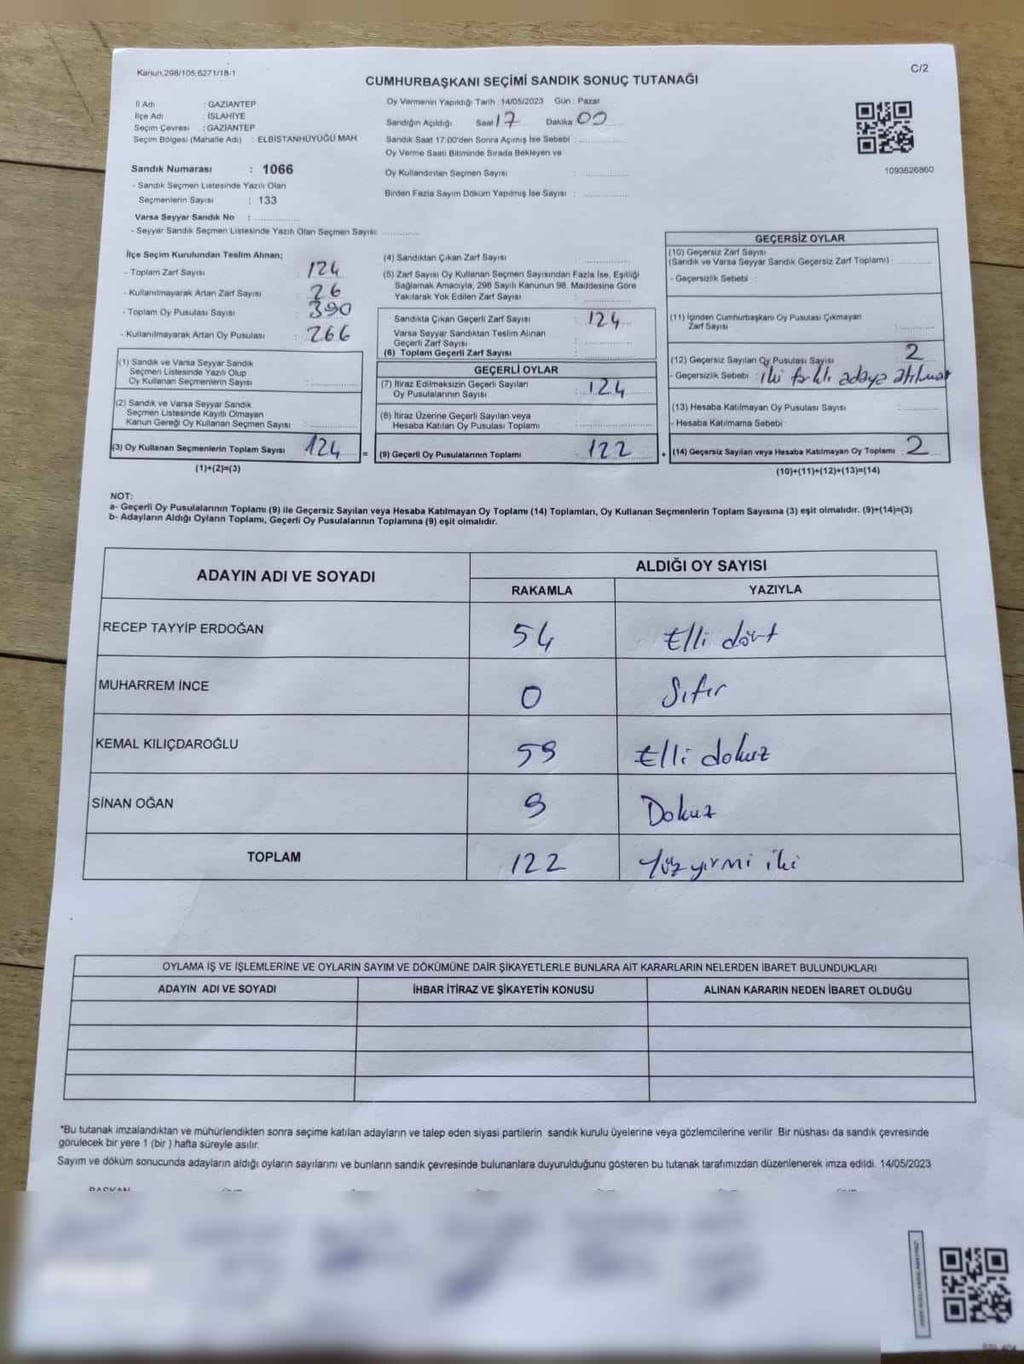 Kanun.298/105,6271/18-1
C/2
CUMHURBAŞKANI SEÇİMİ SANDIK SONUÇ TUTANAĞI
İl Adı : GAZİANTEP
İlçe Adı : İSLAHİYE
Seçim Çevresi : GAZİANTEP
Seçim Bölgesi (Mahalle Adı) : ELBİSTANHÜYÜĞÜ MAH.
Oy Vermenin Yapıldığı Tarih :14/05/2023 Gün : Pazar
Sandığın Açıldığı Saat 17 Dakika 00
Sandık Saat 17:00'den Sonra Açımış İse Sebebi :
Oy Verme Saati Bitiminde Sırada Bekleyen ve
Oy Kullandırılan Seçmen Sayısı :
Birden Fazla Sayım Döküm Yapılmış İse Sayısı :
1093626860
Sandık Numarası : 1066
- Sandık Seçmen Listesinde Yazılı Olan
Seçmenlerin Sayısı : 133
Varsa Seyyar Sandık No :
- Seyyar Sandık Seçmen Listesinde Yazılı Olan Seçmen Sayısı:
İlçe Seçim Kurulundan Teslim Alınan;
- Toplam Zarf Sayısı 124
- Kullanılmayarak Artan Zarf Sayısı 26
- Toplam Oy Pusulası Sayısı 390
- Kullanılmayarak Artan Oy Pusulası 266
(1) Sandık ve Varsa Seyyar Sandık
Seçmen Listesinde Yazılı Olup
Oy Kullanan Seçmenlerin Sayısı :
(2) Sandık ve Varsa Seyyar Sandık
Seçmen Listesinde Kayıtlı Olmayan
Kanun Gereği Oy Kullanan Seçmen Sayısı :
(3) Oy Kullanan Seçmenlerin Toplam Sayısı 124
(1)+(2)=(3)
(4) Sandıktan Çıkan Zarf Sayısı :
(5) Zarf Sayısı Oy Kullanan Seçmen Sayısından Fazla İse, Eşitliği
Sağlamak Amacıyla, 298 Sayılı Kanunun 98. Maddesine Göre
Yakılarak Yok Edilen Zarf Sayısı :
Sandıkta Çıkan Geçerli Zarf Sayısı : 124
Varsa Seyyar Sandıktan Teslim Alınan
Geçerli Zarf Sayısı :
(6) Toplam Geçerli Zarf Sayısı :
GEÇERLİ OYLAR
(7) İtiraz Edilmeksizin Geçerli Sayılan
Oy Pusulalarının Sayısı : 124
(8) İtiraz Üzerine Geçerli Sayılan veya
Hesaba Katılan Oy Pusulası Toplamı :
= (9) Geçerli Oy Pusulalarının Toplamı : 122
GEÇERSİZ OYLAR
(10) Geçersiz Zarf Sayısı
(Sandık ve Varsa Seyyar Sandık Geçersiz Zarf Toplamı) :
- Geçersizlik Sebebi :
(11) İçinden Cumhurbaşkanı Oy Pusulası Çıkmayan
Zarf Sayısı :
(12) Geçersiz Sayılan Oy Pusulası Sayısı : 2
- Geçersizlik Sebebi : iki farklı adaya atılmış
(13) Hesaba Katılmayan Oy Pusulası Sayısı :
- Hesaba Katılmama Sebebi :
+ (14) Geçersiz Sayılan veya Hesaba Katılmayan Oy Toplamı : 2
(10)+(11)+(12)+(13)=(14)
NOT:
a- Geçerli Oy Pusulalarının Toplamı (9) ile Geçersiz Sayılan veya Hesaba Katılmayan Oy Toplamı (14) Toplamları, Oy Kullanan Seçmenlerin Toplam Sayısına (3) eşit olmalıdır. (9)+(14)=(3)
b- Adayların Aldığı Oyların Toplamı, Geçerli Oy Pusulalarının Toplamına (9) eşit olmalıdır.
ADAYIN ADI VE SOYADI
ALDIĞI OY SAYISI
RAKAMLA YAZIYLA
RECEP TAYYİP ERDOĞAN 54 Elli dört
MUHARREM İNCE 0 Sıfır
KEMAL KILIÇDAROĞLU 59 Elli dokuz
SİNAN OĞAN 9 Dokuz
TOPLAM 122 Yüz yirmi iki
OYLAMA İŞ VE İŞLEMLERİNE VE OYLARIN SAYIM VE DÖKÜMÜNE DAİR ŞİKAYETLERLE BUNLARA AİT KARARLARIN NELERDEN İBARET BULUNDUKLARI
ADAYIN ADI VE SOYADI İHBAR İTİRAZ VE ŞİKAYETİN KONUSU ALINAN KARARIN NEDEN İBARET OLDUĞU
*Bu tutanak imzalandıktan ve mühürlendikten sonra seçime katılan adayların ve talep eden siyasi partilerin sandık kurulu üyelerine veya gözlemcilerine verilir Bir nüshası da sandık çevresinde
görülecek bir yere 1 (bir ) hafta süreyle asılır.
Sayım ve döküm sonucunda adayların aldığı oyların sayılarını ve bunların sandık çevresinde bulunanlara duyurulduğunu gösteren bu tutanak tarafımızdan düzenlenerek imza edildi. 14/05/2023
BAŞKAN